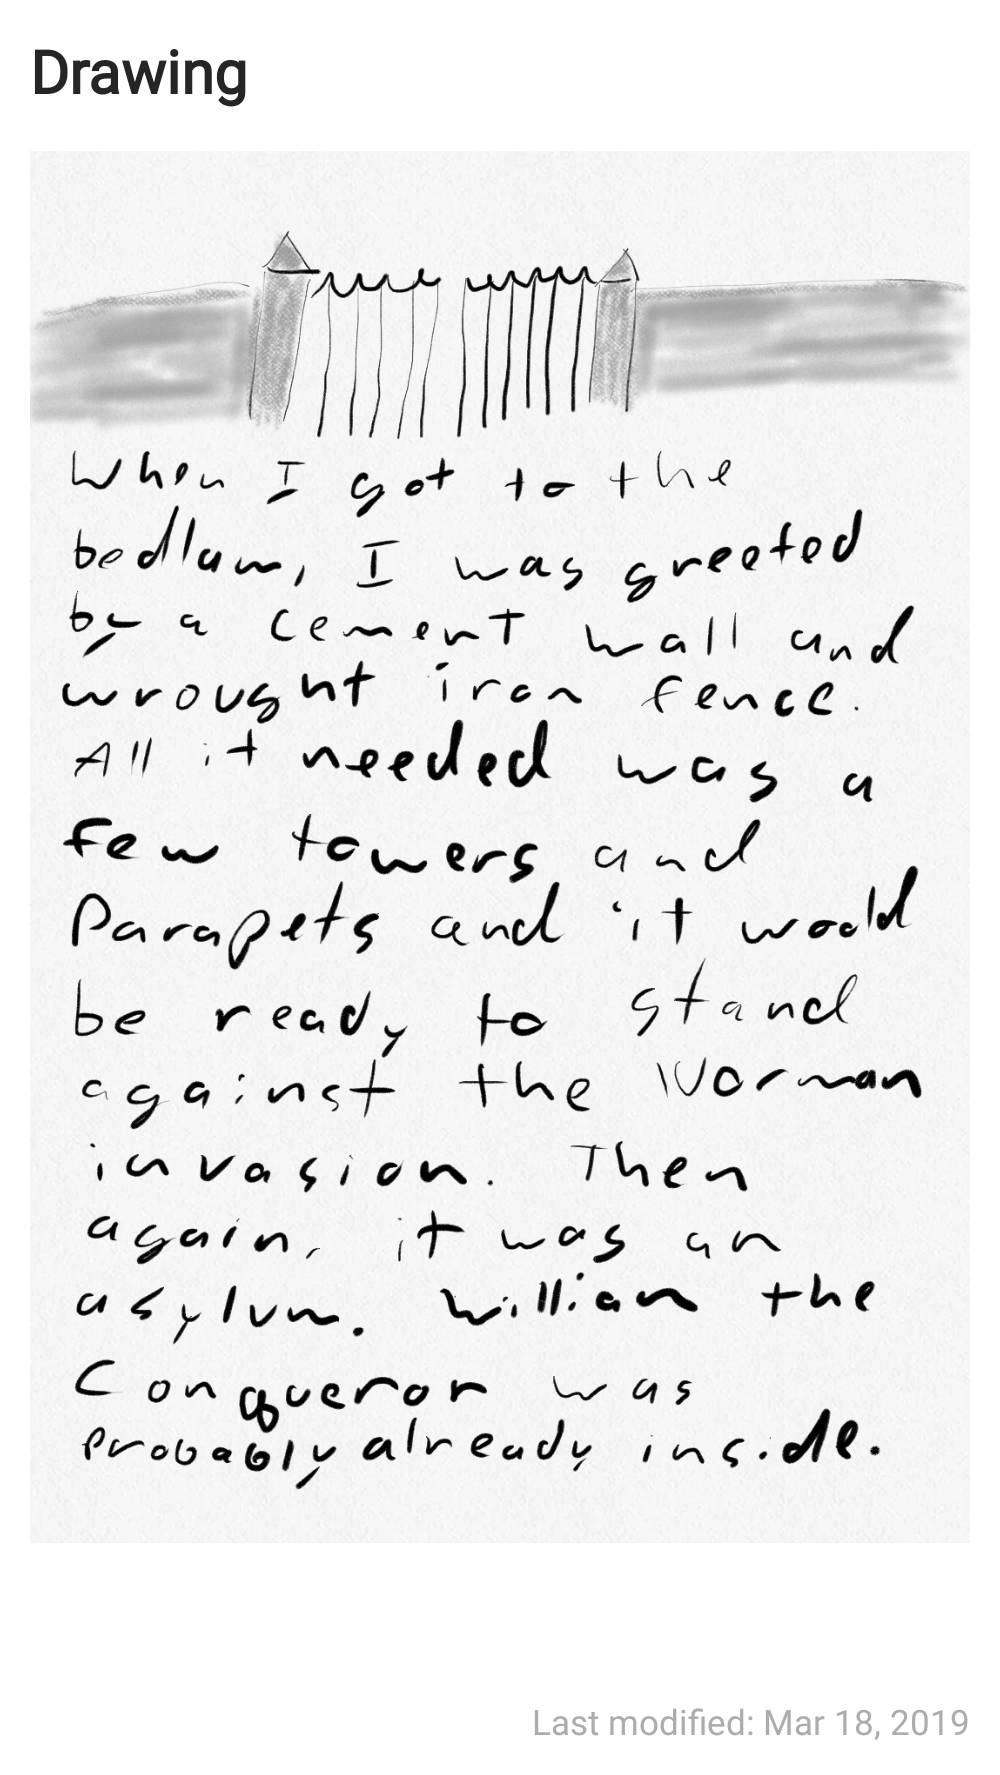 Drawing
When I got to the
bedlam, I was greeted
by a cement wall and
wrought iron fence.
All it needed was a
few towers and
Parapets and it would
be ready to stand
against the Norman
invasion. Then
again, it was an
asylum. William the
Conqueror was
probably already inside.
Last modified: Mar 18, 2019